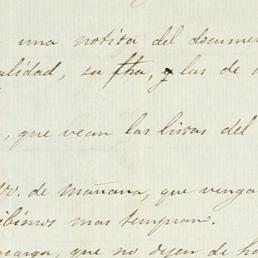 una notita del docume
alidad, su fha, y las de
, que vean las listas del
de mañana, que venga
ibimos mas temprano.
ncargo, que no dejen de ha